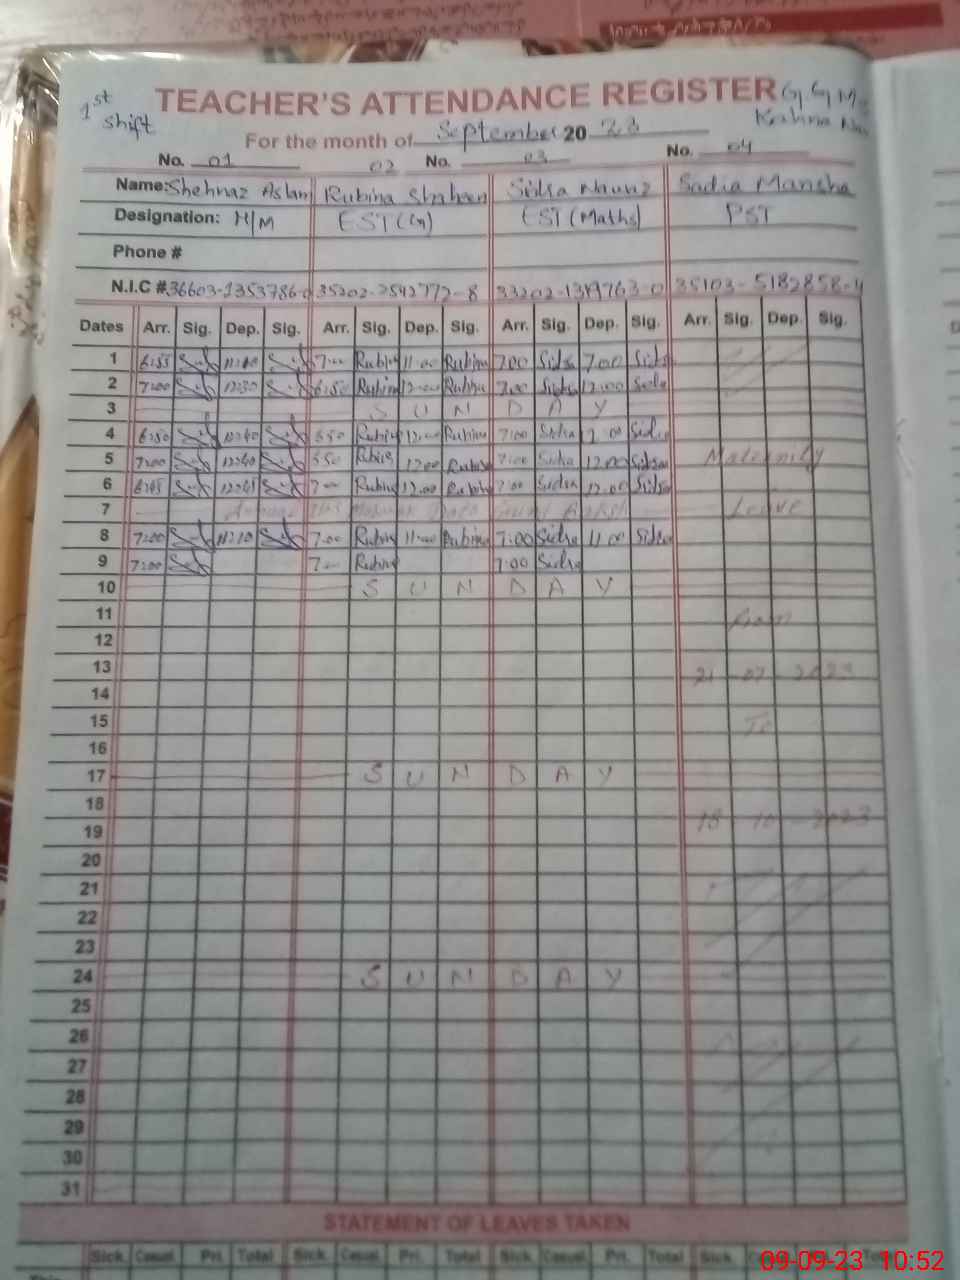 1st shift
TEACHER'S ATTENDANCE REGISTER
G G M
For the month of September 20 23
No. 01 02 No. 03 No. 04
Name: Shehnaz Aslam Rubina Shaheen Sidra Sadia Mansha
Designation: H/M EST (Maths) PST
Phone #
N.I.C # 35202-2542772-8 35103-5182858-4
Dates Arr. Sig. Dep. Sig. Arr. Sig. Dep. Sig. Arr. Sig. Dep. Sig. Arr. Sig. Dep. Sig.
1 6:55 7:00 Rubina 11:00 Rubina 7:00 Sidra 7:00 Sidra
2 7:00 12:30 6:50 Rubina 12:00 Rubina 7:00 Sidra 12:00 Sidra
3 S U N D A Y
4 6:50 12:40 6:50 Rubina 12:00 Rubina 7:00 Sidra 12:00 Sidra
5 7:00 12:40 6:50 Rubina 12:00 Rubina 7:00 Sidra 12:00 Sidra Maternity
6 6:45 12:45 7:00 Rubina 12:00 Rubina 7:00 Sidra 12:00 Sidra
7 Data Leave
8 7:00 11:10 7:00 Rubina 11:00 Rubina 7:00 Sidra 11:00 Sidra
9 7:00 7:00 Rubina 7:00 Sidra
10 S U N D A Y
11 from
12
13 21-07-2023
14
15 To
16
17 S U N D A Y
18
19 18-10-2023
20
21
22
23
24 S U N D A Y
25
26
27
28
29
30
31
STATEMENT OF LEAVES TAKEN
Sick. Casual Pri. Total Sick. Casual. Pri. Total Sick. Casual Pri. Total Sick.
09-09-23 10:52